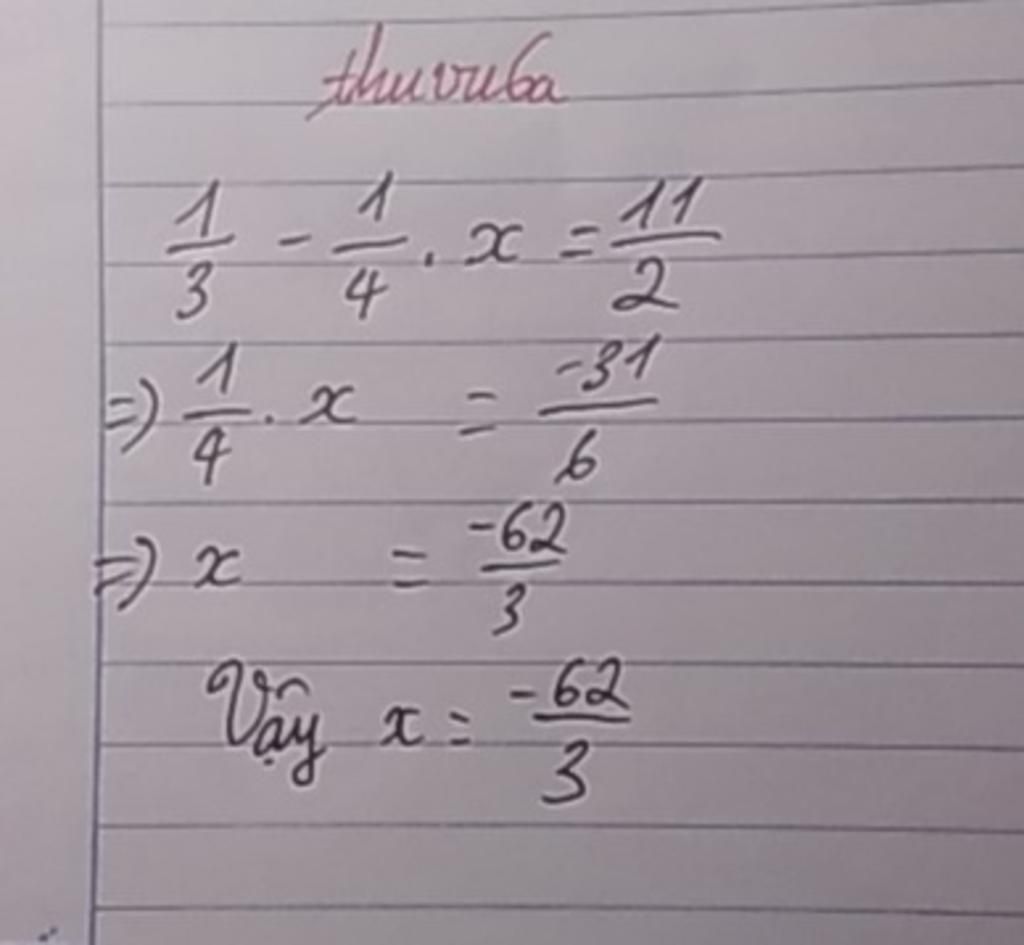 thuvuba
1/3 - 1/4 . x = 11/2
=) 1/4 . x = -31/6
=) x = -62/3
Vậy x = -62/3